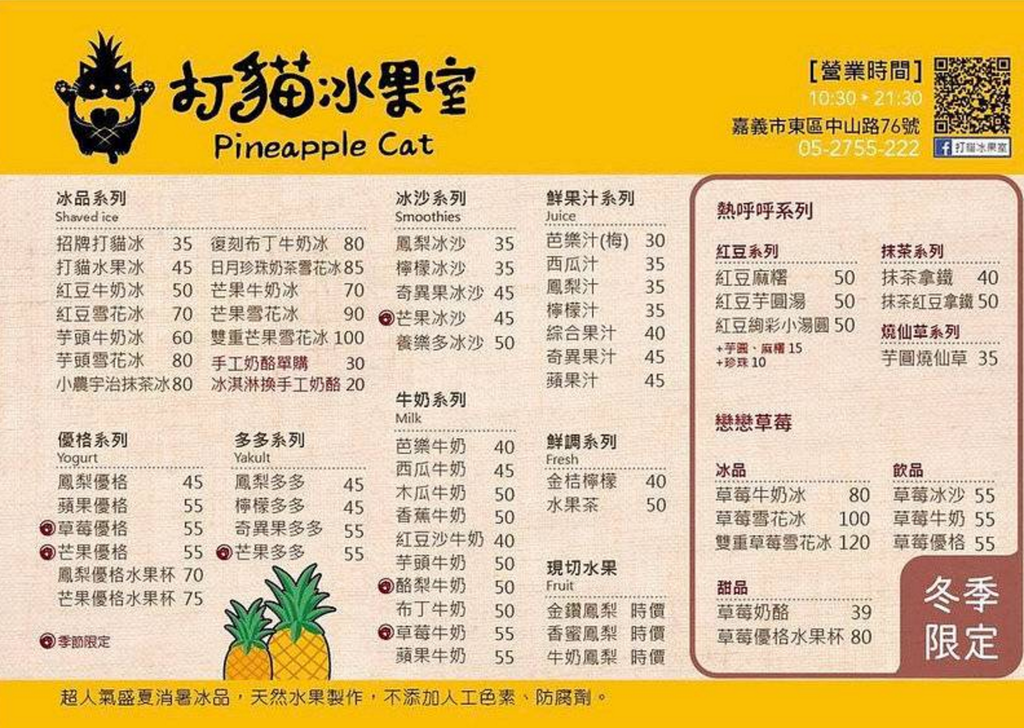 打貓冰果室
Pineapple Cat
[營業時間]
10:30 ▸ 21:30
嘉義市東區中山路76號
05-2755-222
打貓冰果室
冰品系列
Shaved ice
招牌打貓冰 35
打貓水果冰 45
紅豆牛奶冰 50
紅豆雪花冰 70
芋頭牛奶冰 60
芋頭雪花冰 80
小農宇治抹茶冰 80
復刻布丁牛奶冰 80
日月珍珠奶茶雪花冰 85
芒果牛奶冰 70
芒果雪花冰 90
雙重芒果雪花冰 100
手工奶酪單購 30
冰淇淋換手工奶酪 20
優格系列
Yogurt
鳳梨優格 45
蘋果優格 55
草莓優格 55
芒果優格 55
鳳梨優格水果杯 70
芒果優格水果杯 75
季節限定
多多系列
Yakult
鳳梨多多 45
檸檬多多 45
奇異果多多 55
芒果多多 55
冰沙系列
Smoothies
鳳梨冰沙 35
檸檬冰沙 35
奇異果冰沙 45
芒果冰沙 45
養樂多冰沙 50
牛奶系列
Milk
芭樂牛奶 40
西瓜牛奶 45
木瓜牛奶 50
香蕉牛奶 50
紅豆沙牛奶 40
芋頭牛奶 50
酪梨牛奶 50
布丁牛奶 50
草莓牛奶 55
蘋果牛奶 55
鮮果汁系列
Juice
芭樂汁(梅) 30
西瓜汁 35
鳳梨汁 35
檸檬汁 35
綜合果汁 40
奇異果汁 45
蘋果汁 45
鮮調系列
Fresh
金桔檸檬 40
水果茶 50
現切水果
Fruit
金鑽鳳梨 時價
香蜜鳳梨 時價
牛奶鳳梨 時價
熱呼呼系列
紅豆系列
紅豆麻糬 50
紅豆芋圓湯 50
紅豆絢彩小湯圓 50
+芋圓、麻糬 15
+珍珠 10
抹茶系列
抹茶拿鐵 40
抹茶紅豆拿鐵 50
燒仙草系列
芋圓燒仙草 35
戀戀草莓
冰品
草莓牛奶冰 80
草莓雪花冰 100
雙重草莓雪花冰 120
飲品
草莓冰沙 55
草莓牛奶 55
草莓優格 55
甜品
草莓奶酪 39
草莓優格水果杯 80
冬季
限定
超人氣盛夏消暑冰品，天然水果製作，不添加人工色素、防腐劑。